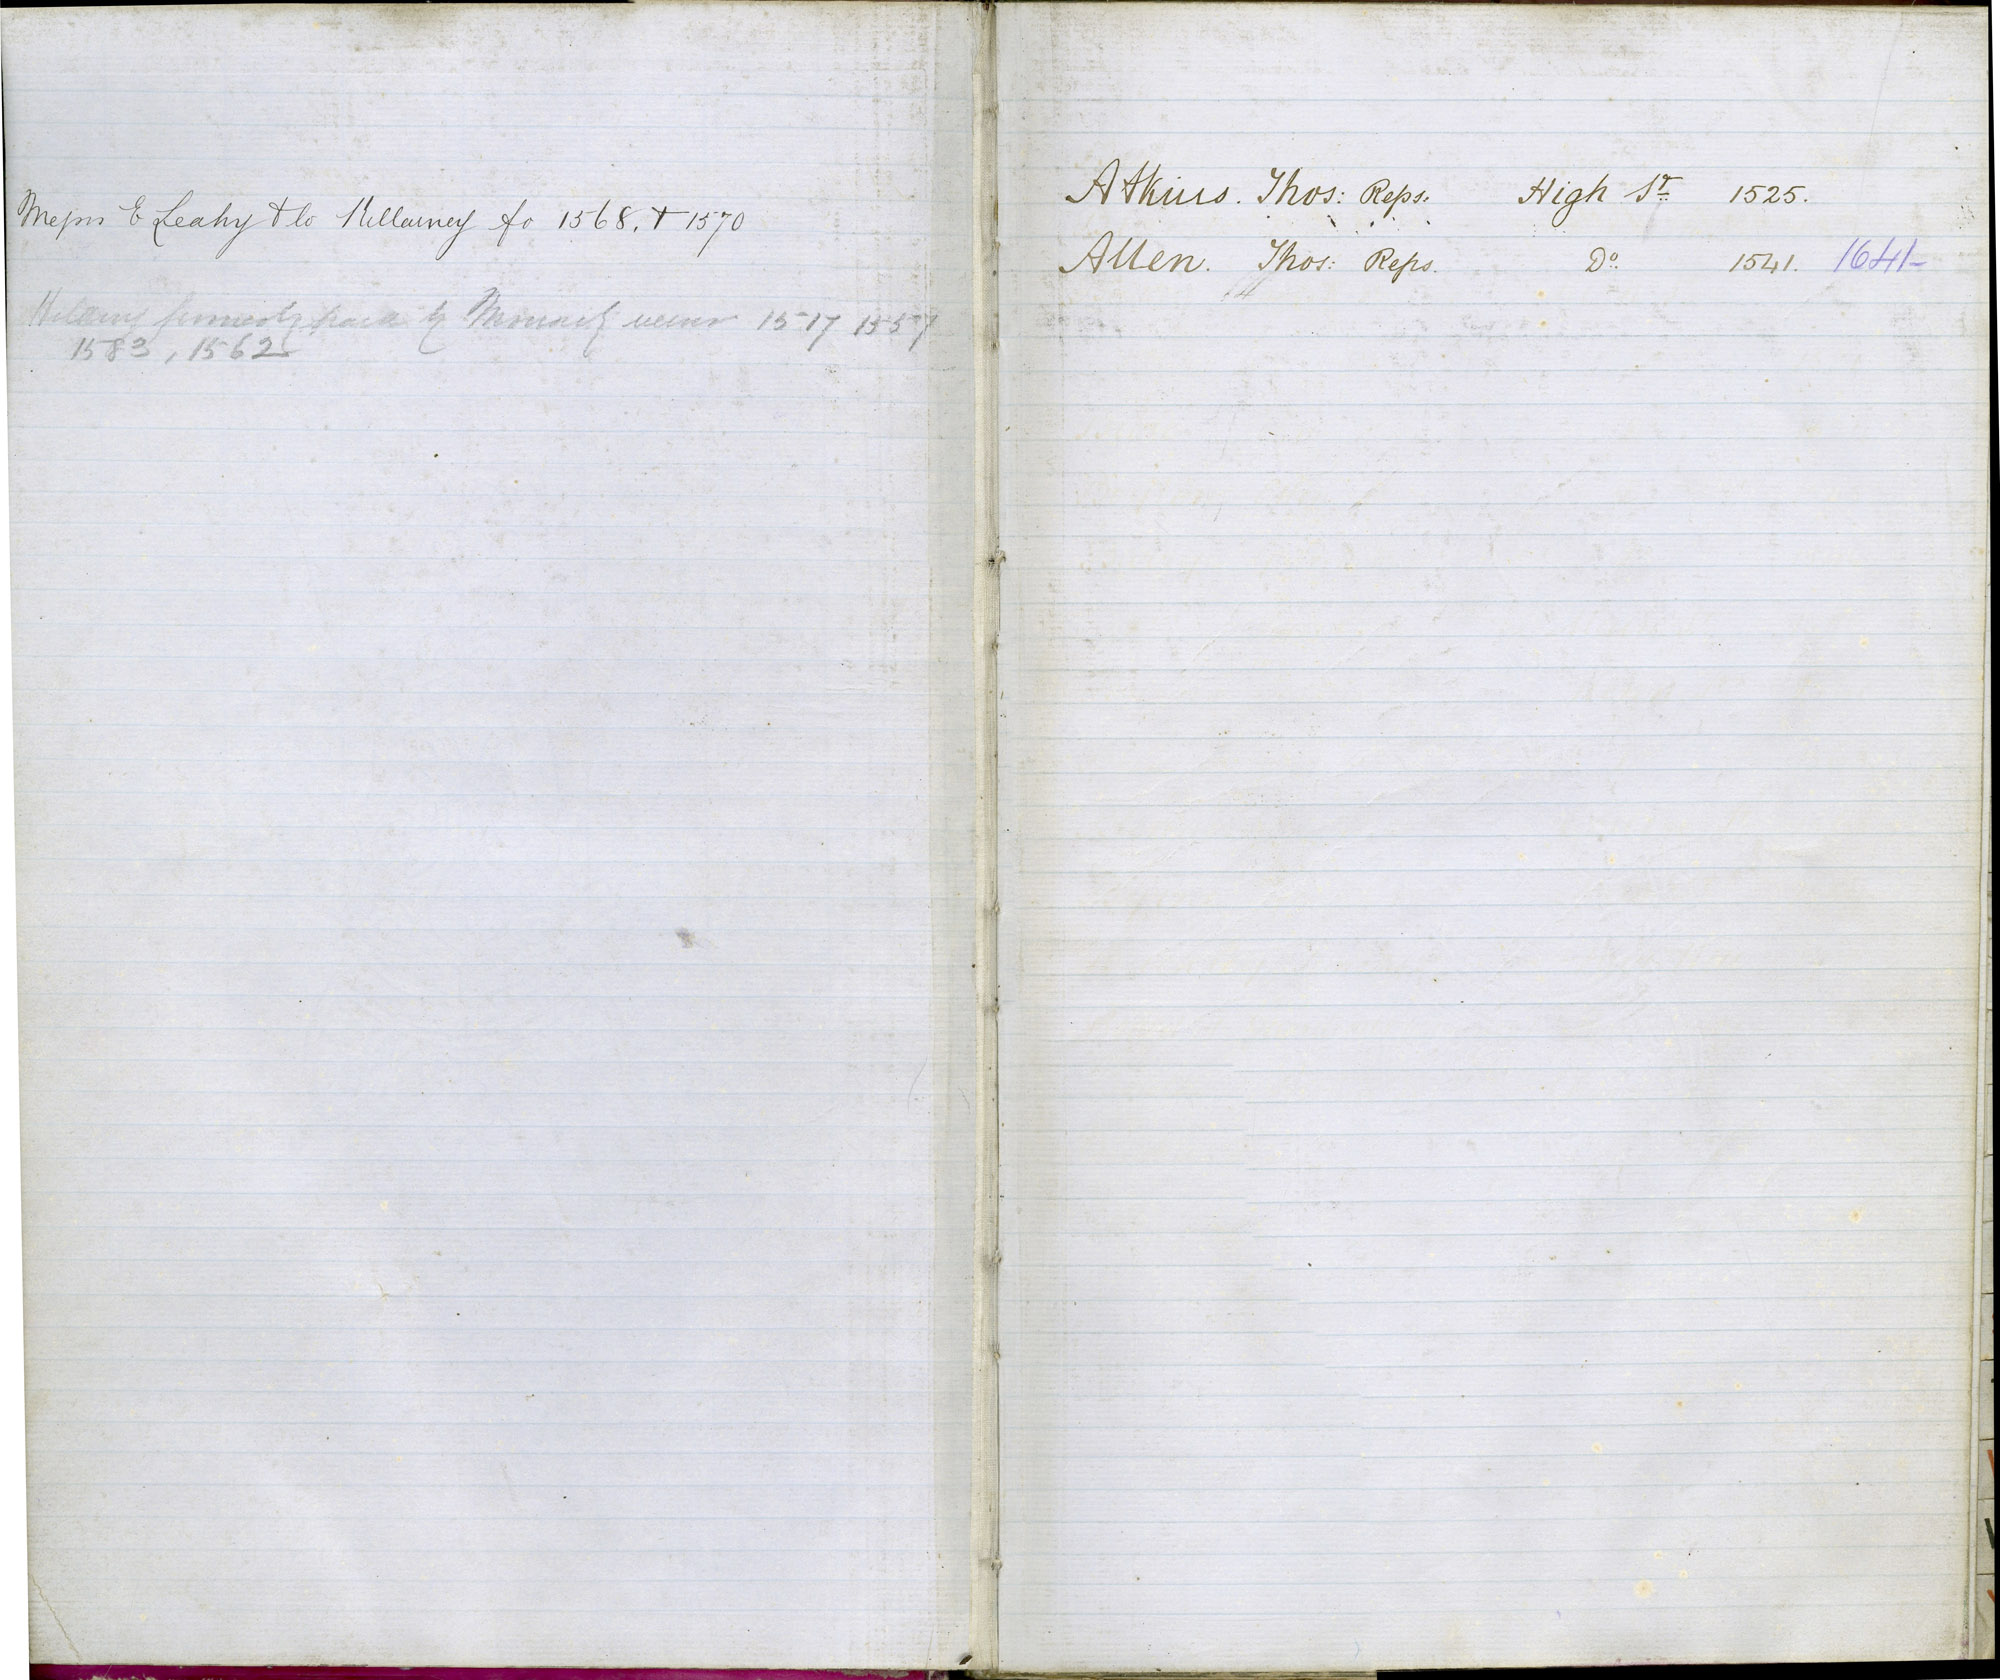 Messrs E Leahy & Co Killarney fo 1568. & 1570
formerly paid by 1517 1557
1583, 1562
Atkins. Thos: Reps: High St. 1525.
Allen. Thos: Reps. Do. 1541. 1641-